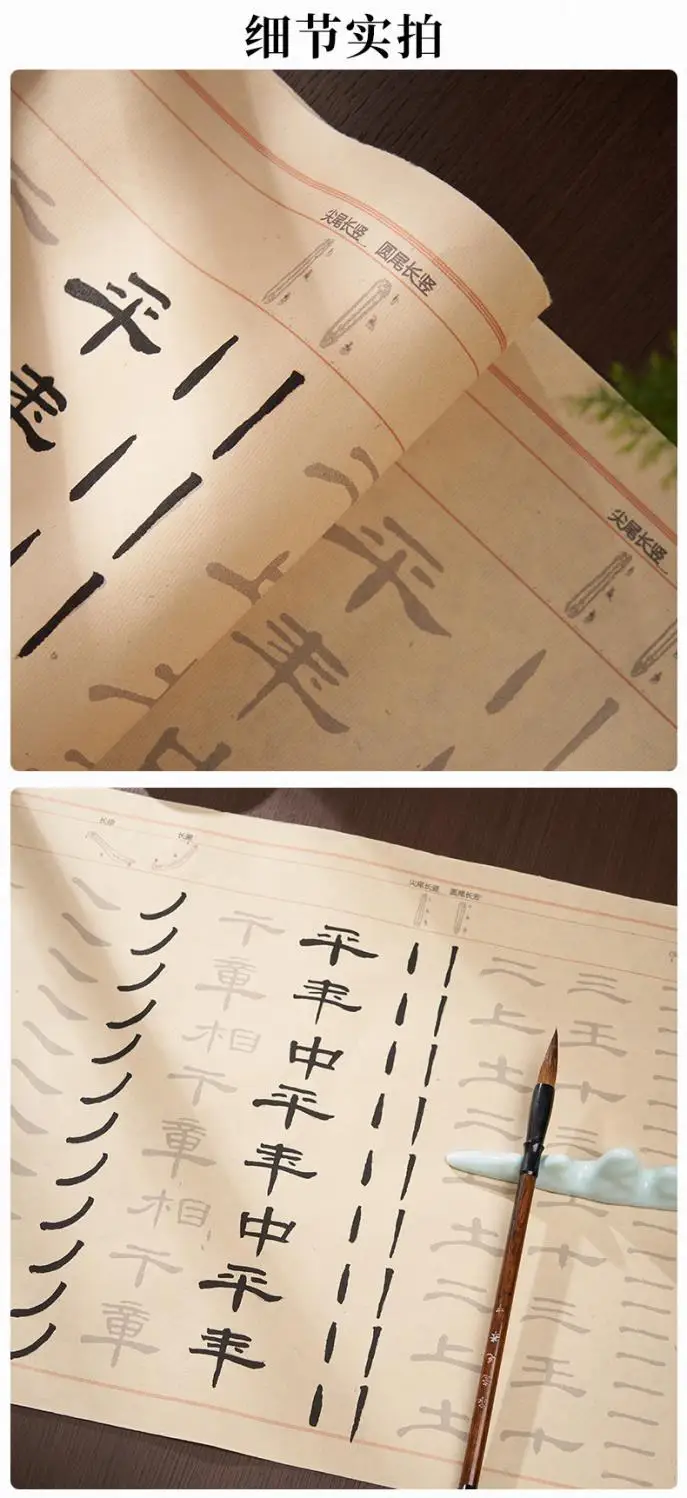 细节实拍
尖尾长竖
圆尾长竖
平
年
尖尾长竖
平
年
长撇
尖尾长竖
圆尾长竖
三王十三王十三王十
二上土二上土二上土
平年中平年中平年
下章相下章相下章